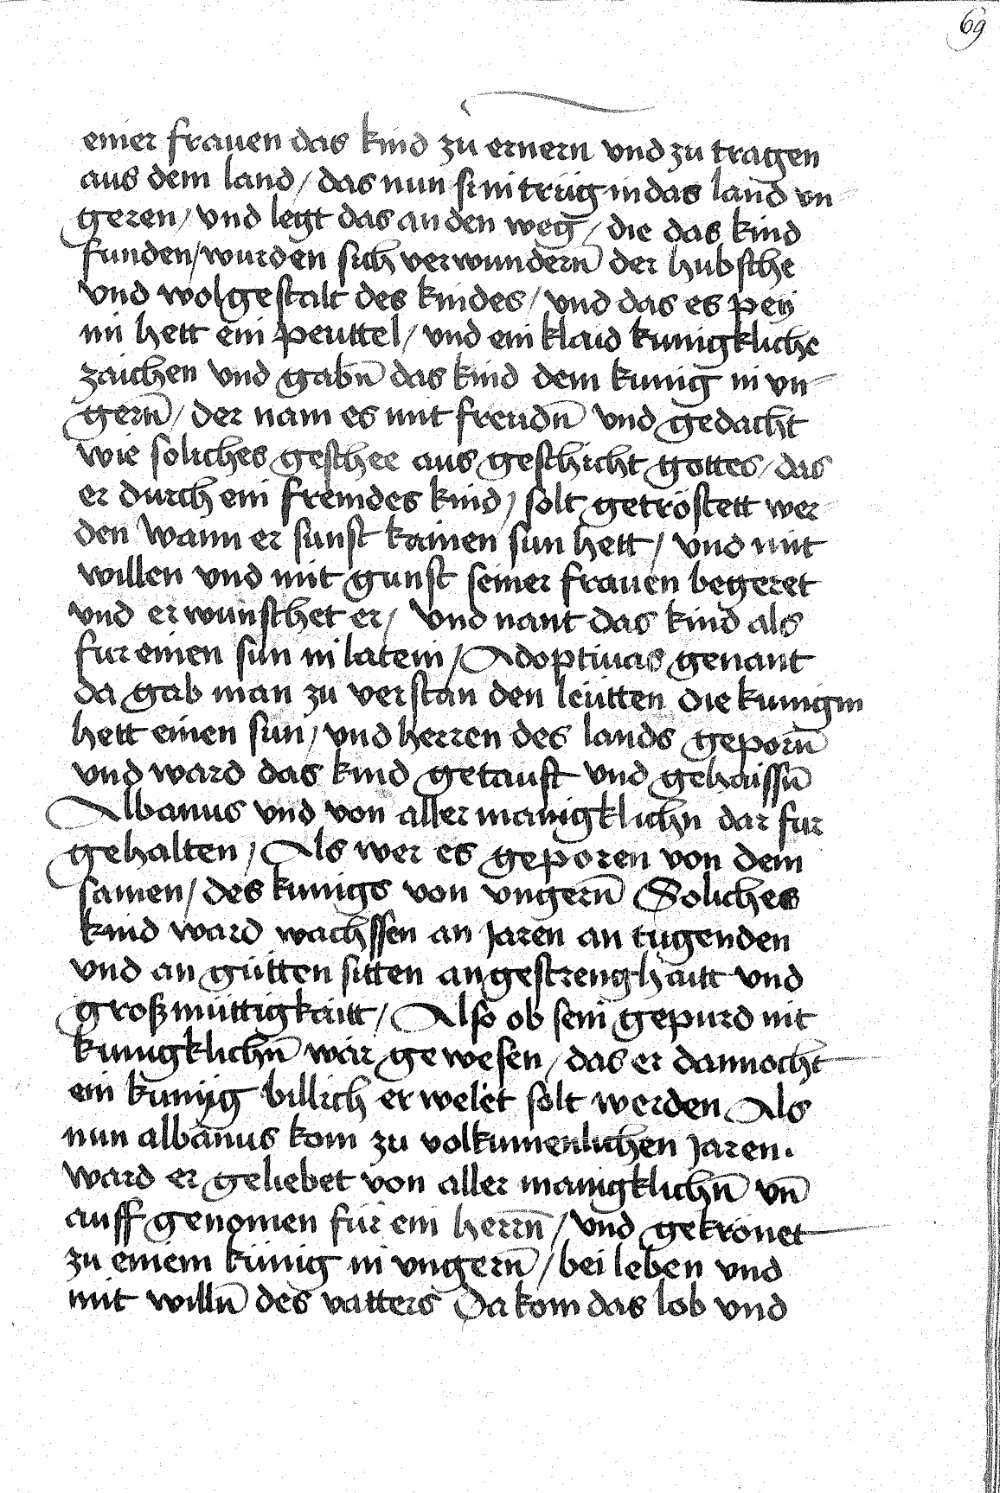 69
einer frauen das kind zu ernern vnd zu tragen
aus dem land / das nun sÿ in trüg in das land vn
geren / vnd legt das an den weg / die das kind
funden / wurden sich verwundern̄ der hubsche
vnd wolgestalt des kindes / vnd das es peÿ
im hett ein peuttel / vnd ein klaid kunigkliche
zaichen vnd gabn̄ das kind dem kunig in vn
gern̄ / der nam es mit freudn̄ vnd gedacht
wie soliches geschee aus geschicht gottes / das
er durch ein fremdes kind / solt getröstett wer
den wann er sunst kainen sun hett / vnd mit
willen vnd mit gunst seiner frauen begeret
vnd erwunschet er / vnd nant das kind als
fur einen sun in latein / Adoptiuas genant
da gab man zu verstan den leütten die kunigin
hett einen sun / vnd herren des lands geporn̄
vnd ward das kind getauft vnd gehaissn̄
Albanus vnd von aller manigklichn dar fur
gehalten / Als wer es geporen von dem
samen / des kunigs von vngern̄ Soliches
kind ward wachssen an jaren an tugenden
vnd an gütten sitten an gestrenghaitt vnd
großmüttigkaitt / Also ob sein gepurd nit
kunigklichn̄ wär gewesen / das er dannocht
ein kunig billich erwelet solt werden Als
nun albanus kom zu volkumenlichen jaren .
ward er geliebet von aller manigklichn̄ vn̄
auff genomen für ein herrn̄ / vnd gekrönet
zu einem künig in vngern̄ / bei leben vnd
mit willn̄ des vatters Da kom das lob vnd